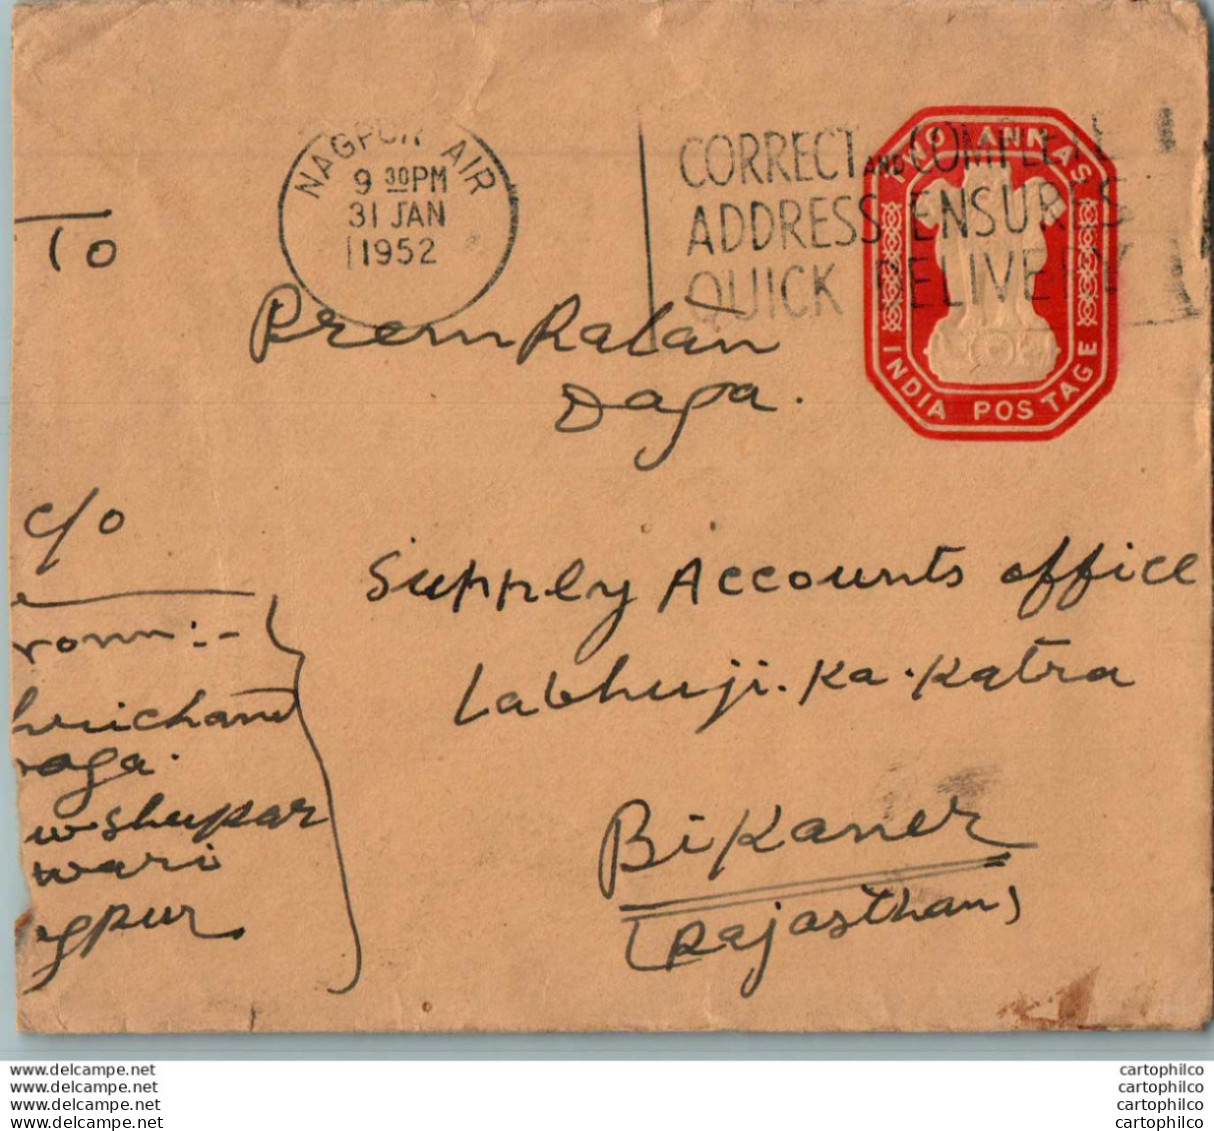 NAGPUR AIR
9 30PM
31 JAN
1952
CORRECT AND COMPLETE
ADDRESS ENSURES
QUICK DELIVERY
TWO ANNAS
INDIA POSTAGE
To
Prem Ratan
Daga.
c/o
Supply Accounts office
Labhuji. Ka. Katra
Bikaner
(Rajasthan)
rom:-
hrichand
aga.
wshupar
wari
gpur
www.delcampe.net
www.delcampe.net
www.delcampe.net
www.delcampe.net
cartophilco
cartophilco
cartophilco
cartophilco